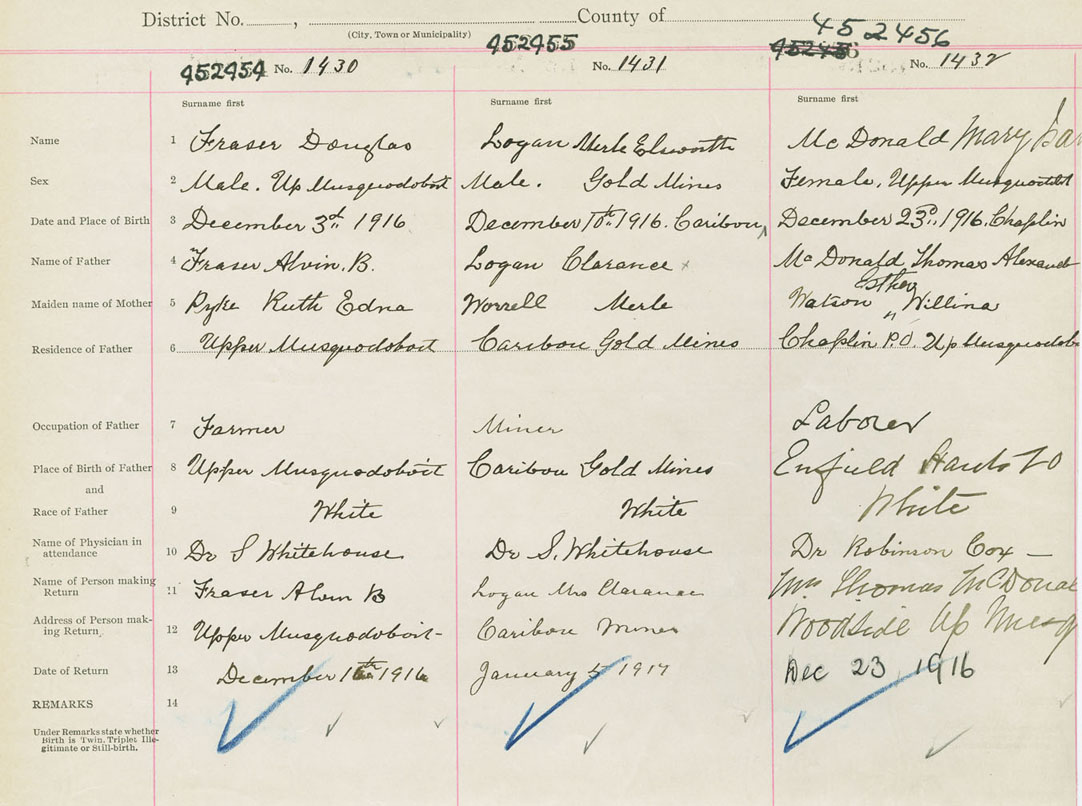 District No. , County of
(City, Town or Municipality)
452454 No. 1430 452455 No. 1431 452456 No. 1432
Surname first Surname first Surname first
Name 1 Fraser Douglas Logan Merle Elsworth Mc Donald Mary
Sex 2 Male. Up Musquodoboit Male. Gold Mines Female. Upper Musquodobit
Date and Place of Birth 3 December 3rd 1916 December 10th 1916. Caribou December 23rd 1916. Chaplin
Name of Father 4 Fraser Alvin. B. Logan Clarance Mc Donald Thomas Alexand
Maiden name of Mother 5 Pyke Ruth Edna Worrell Merle Watson Esther Willina
Residence of Father 6 Upper Musquodoboit Caribou Gold Mines Chaplin P.O. Up Musquodob
Occupation of Father 7 Farmer Miner Laborer
Place of Birth of Father 8 Upper Musquodoboit Caribou Gold Mines Enfield Hants
and
Race of Father 9 White White White
Name of Physician in
attendance 10 Dr S Whitehouse Dr S. Whitehouse Dr Robinson Cox —
Name of Person making
Return 11 Fraser Alvin B Logan Mrs Clarance Mrs Thomas McDonal
Address of Person mak-
ing Return 12 Upper Musquodoboit- Caribou Mines Woodside Up Musq
Date of Return 13 December 1916 January 5 1917 Dec 23 1916
REMARKS 14
Under Remarks state whether
Birth is Twin, Triplet Ille-
gitimate or Still-birth.